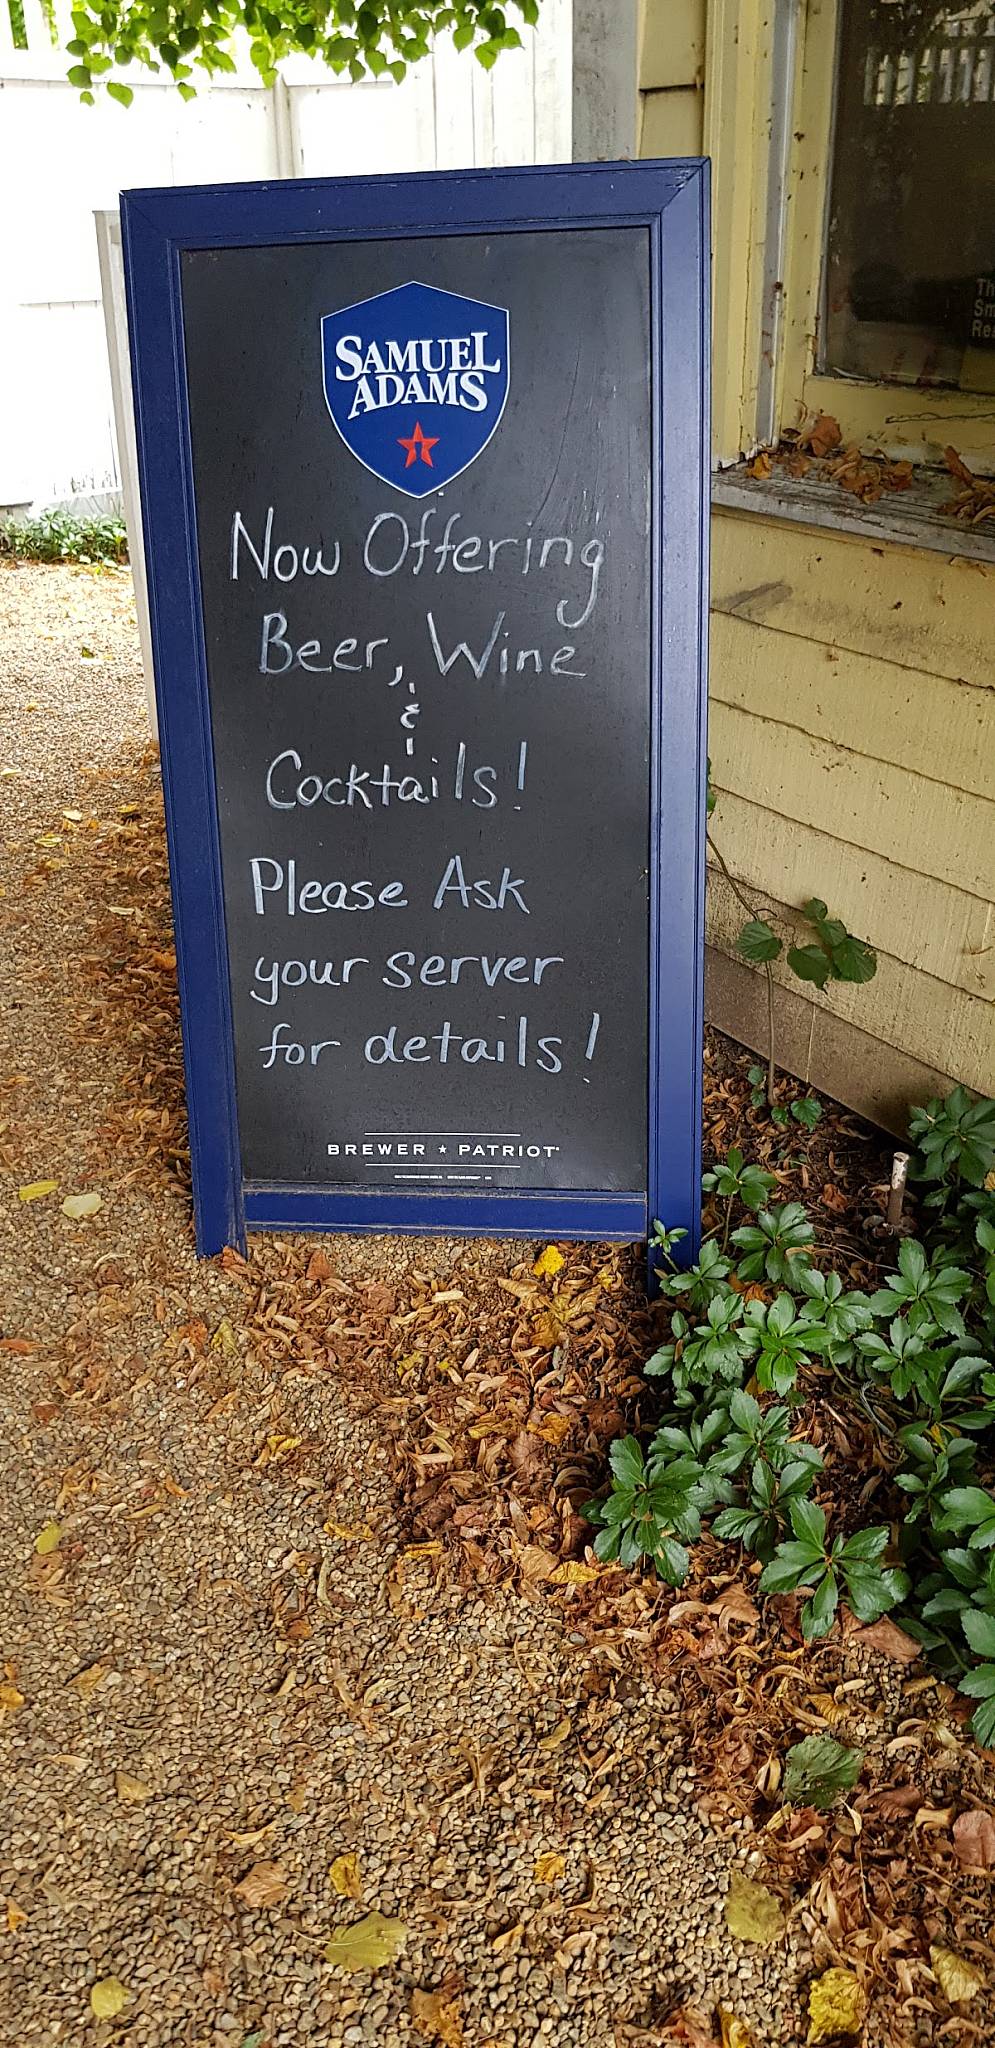 SAMUEL
ADAMS
Now Offering
Beer, Wine
&
Cocktails!
Please Ask
your server
for details!
BREWER ★ PATRIOT